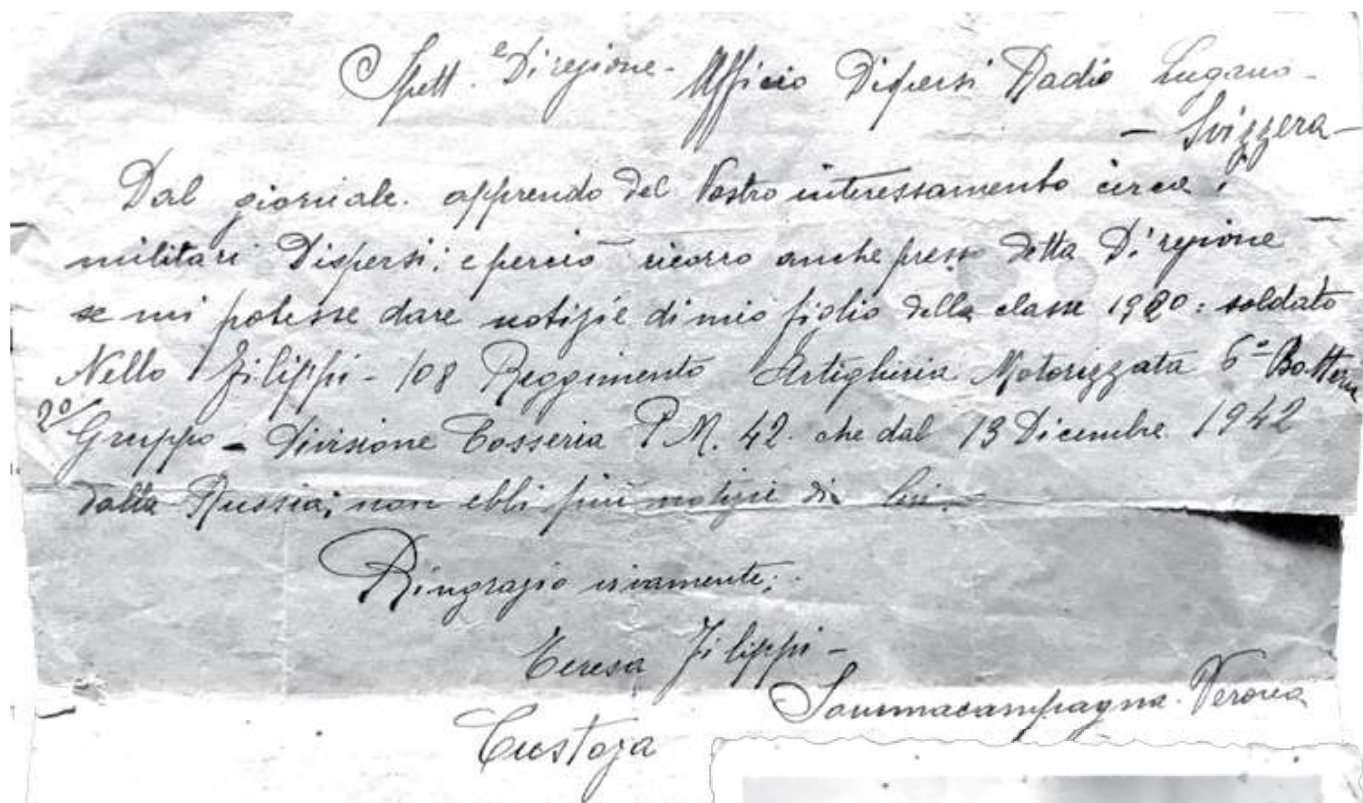 Spett.le Direzione - Ufficio Dispersi Radio Lugano -
- Svizzera -
Dal giornale. apprendo del Vostro interessamento circa i
militari Dispersi; e perciò ricorro anche presso detta Direzione
se mi potesse dare notizie di mio figlio della classe 1920: soldato
Nello Filippi - 108 Reggimento Artiglieria Motorizzata 6ª Batteria
2º Gruppo - Divisione Cosseria P.M. 42. che dal 13 Dicembre 1942
dalla Russia; non ebbi più notizie di lui.
Ringrazio vivamente;
Teresa Filippi -
Sommacampagna. Verona
Custoza